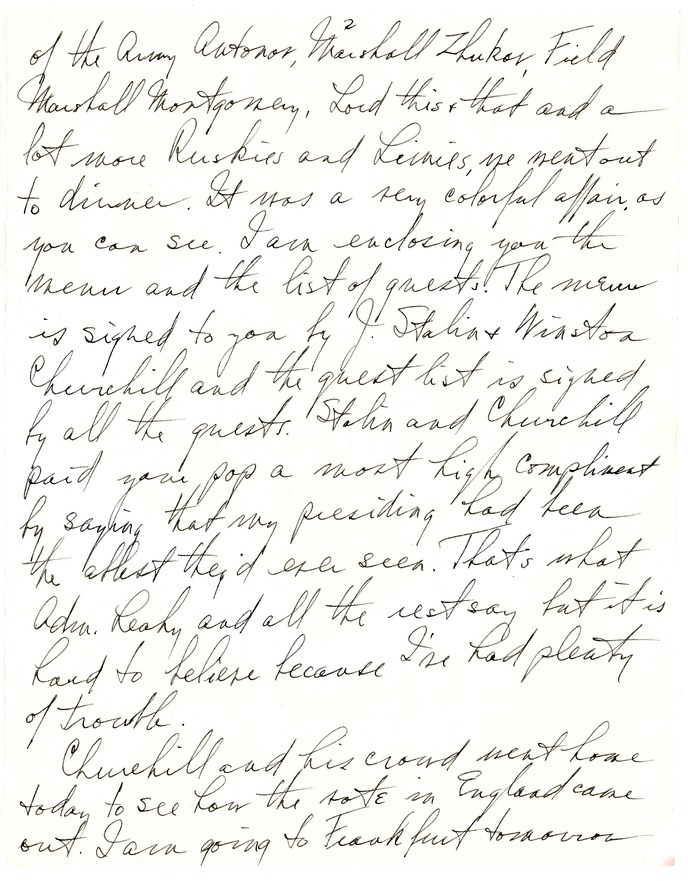 2
of the Army Antonov, Marshall Zhukov, Field
Marshall Montgomery, Lord this & that and a
lot more Ruskies and Limies, we went out
to dinner. It was a very colorful affair, as
you can see. I am enclosing you the
menu and the list of guests. The menu
is signed to you by J. Stalin & Winston
Churchill and the guest list is signed
by all the guests. Stalin and Churchill
paid your pop a most high compliment
by saying that my presiding had been
the ablest they'd ever seen. That's what
Adm. Leahy and all the rest say but it is
hard to believe because I've had plenty
of trouble.
Churchill and his crowd went home
today to see how the vote in England came
out. I am going to Frankfurt tomorrow